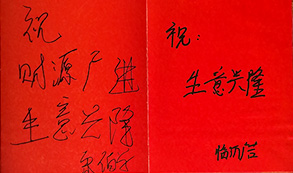 祝
财源广进
生意兴隆
祝:
生意兴隆